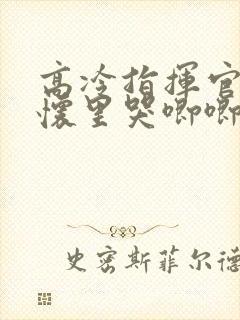 高冷指揮官
懷里哭唧唧
史密斯菲尔德